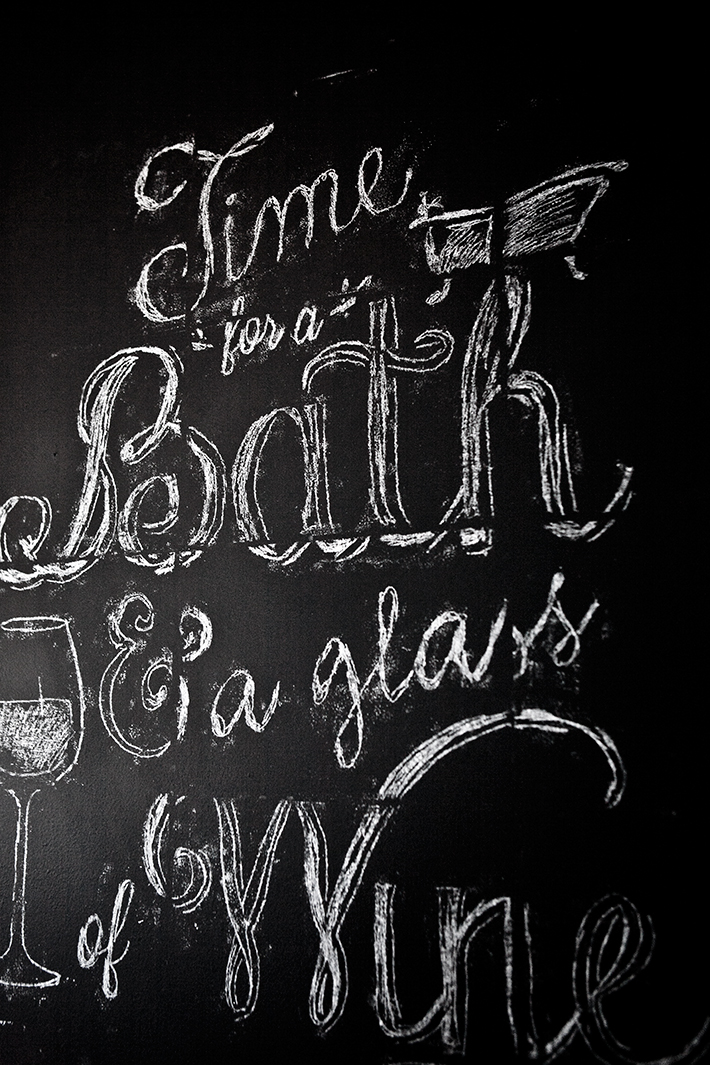 Time
for a
Bath
& a glass
of Wine